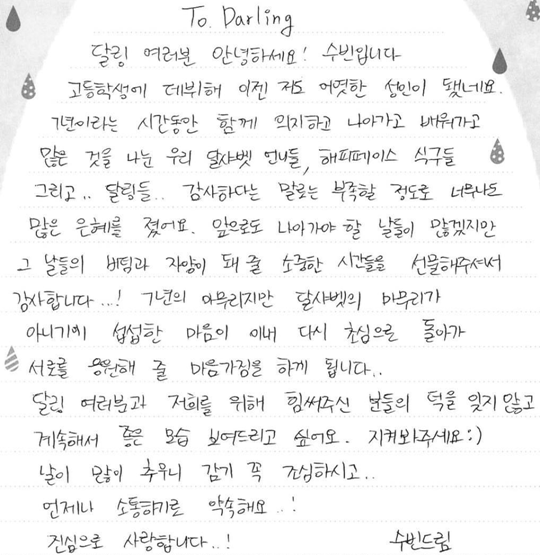 To. Darling
달링 여러분 안녕하세요! 수빈입니다
고등학생에 데뷔해 이젠 저도 어엿한 성인이 됐네요.
7년이라는 시간동안 함께 의지하고 나아가고 배워가고
많은 것을 나눈 우리 달샤벳 언니들, 해피페이스 식구들
그리고.. 달링들.. 감사하다는 말로는 부족할 정도로 너무나도
많은 은혜를 졌어요. 앞으로도 나아가야 할 날들이 많겠지만
그 날들의 버팀과 자양이 돼 줄 소중한 시간들을 선물해주셔서
감사합니다...! 7년의 마무리지만 달샤벳의 마무리가
아니기에 섭섭한 마음이 이내 다시 초심으로 돌아가
서로를 응원해 줄 마음가짐을 하게 됩니다..
달링 여러분과 저희를 위해 힘써주신 분들의 덕을 잊지 않고
계속해서 좋은 모습 보여드리고 싶어요. 지켜봐주세요:)
날이 많이 추우니 감기 꼭 조심하시고..
언제나 소통하기로 약속해요..!
진심으로 사랑합니다..! 수빈드림